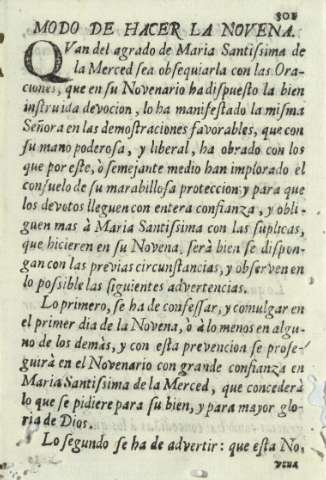 301
MODO DE HACER LA NOVENA.
QVan del agrado de Maria Santissima de
la Merced sea obsequiarla con las Ora-
ciones, que en su Novenario ha dispuesto la bien
instruida devocion, lo ha manifestado la misma
Señora en las demostraciones favorables, que con
su mano poderosa, y liberal, ha obrado con los
que por este, ò semejante medio han implorado el
consuelo de su marabillosa proteccion: y para que
los devotos lleguen con entera confianza, y obli-
guen mas à Maria Santissima con las suplicas,
que hicieren en su Novena, serà bien se dispon-
gan con las previas circunstancias, y observen en
lo possible las siguientes advertencias.
Lo primero, se ha de confessar, y comulgar en
el primer dia de la Novena, ò à lo menos en algu-
no de los demàs, y con esta prevencion se prose-
guirà en el Novenario con grande confianza en
Maria Santissima de la Merced, que concederà
lo que se pidiere para su bien, y para mayor glo-
ria de Dios.
Lo segundo se ha de advertir: que esta No,
vena